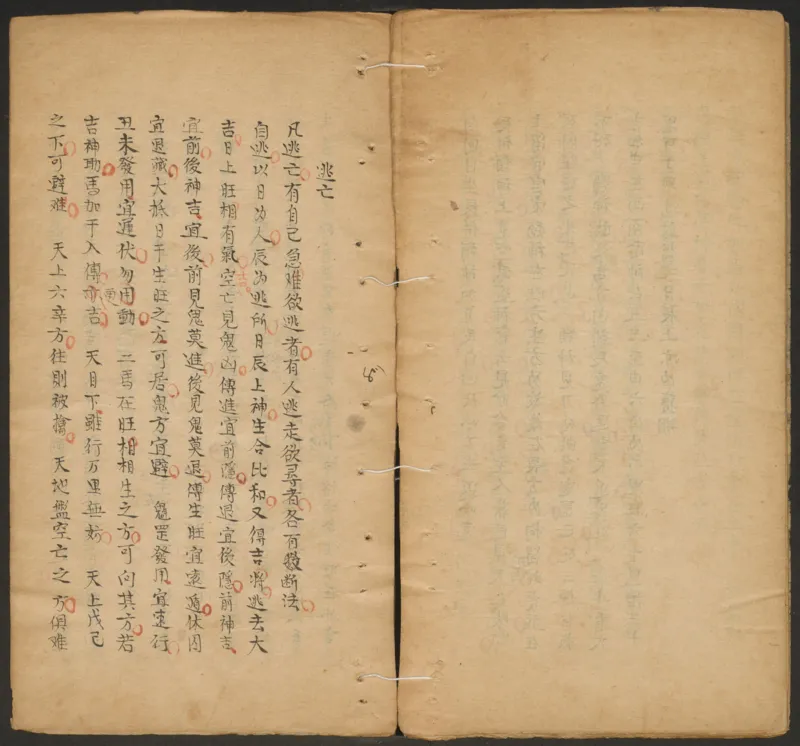 逃亡
凡逃亡有自己急难欲逃者有人逃走欲尋者各有數断法
自逃以日为人辰为逃所日辰上神生合比和又得吉將逃去大
吉日上旺相有氣空亡見鬼凶傳進宜前隱傳退宜後隱前神吉
宜前後神吉宜後前見鬼莫進後見鬼莫退傳生旺宜遠遁休囚
宜退藏大抵日干生旺之方可居鬼方宜避 魁罡發用宜速行
丑未發用宜遲伏勿用動 二馬在旺相相生之方可向其方若
吉神助馬加干入傳亦吉 天目下雖行万里無妨 天上戊己
之下可避难 天上六辛方往則被擒 天地盤空亡之方俱难